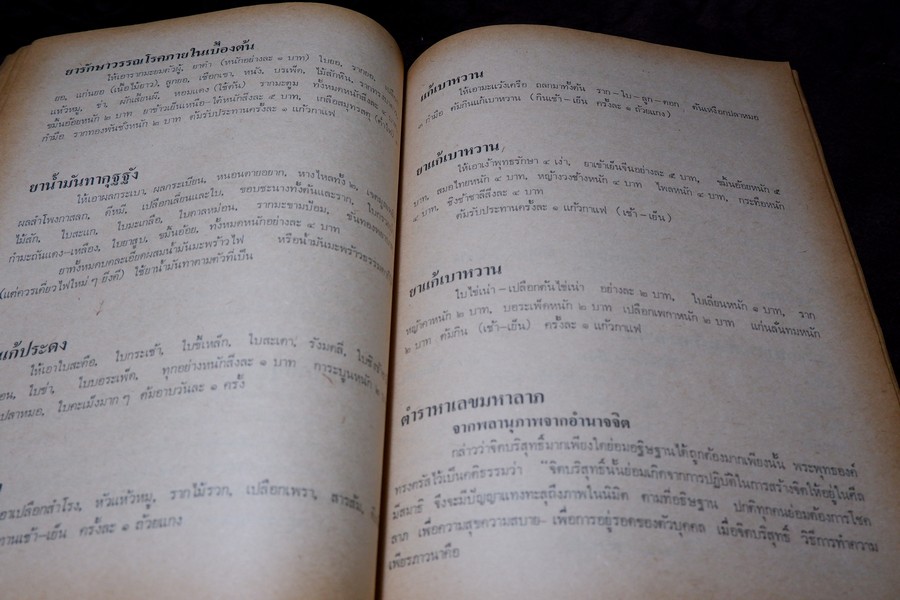 ยารักษาวรรณโรคภายในเบื้องต้น
ให้เอารากมะยมตัวผู้, ยาดำ (หนักอย่างละ ๑ บาท) ใบยอ, รากยอ,
ยอ, แก่นยอ (เนื้อไม้ยาว), ลูกยอ, เชือกเขา, หนัง, บรเพ็ด, ไม้สักหิน,
แห้วหมู, ข่า, ผักเสี้ยนผี, หอมแดง (ใช้ต้น) รากมะตูม ทั้งหมดหนักสิ่งละ
ขมิ้นอ้อยหนัก ๒ บาท ยาข้าวเย็นเหนือ-ใต้หนักสิ่งละ ๕ บาท, เกลือสมุทร
กำมือ รากทองพันชั่งหนัก ๒ บาท ต้มรับประทานครั้งละ ๑ แก้วกาแฟ
ยาน้ำมันทากุฐฐัง
ให้เอาผลกระเบา, ผลกระเบียน, หนอนตายอยาก, หางไหลทั้ง ๒,
ผลลำโพงกาสลก, ดีหมี, เปลือกเลี่ยนและใบ, ขอบชะนางทั้งต้นและราก,
ไม้สัก, ใบสะแก, ใบมะเกลือ, ใบตาลหม่อน, รากมะขามป้อม,
กำมะถันแดง-เหลือง, ใบยาสูบ, ขมิ้นอ้อย, ทั้งหมดหนักอย่างละ ๔ บาท
ยาทั้งหมดบดละเอียดผสมน้ำมันมะพร้าวไฟ หรือน้ำมันมะพร้าวธรรมดา
(แต่ควรเคี่ยวไฟใหม่ ๆ ยิ่งดี) ใช้ยาน้ำมันทาตามตัวที่เป็น
แก้ประดง
ให้เอาใบสะคือ, ใบกระเช้า, ใบขี้เหล็ก, ใบสะเดา, รังมดลี่,
ใบข่า, ใบบอระเพ็ด, ทุกอย่างหนักสิ่งละ ๑ บาท การะบูนหนัก
ปลาหมอ, ใบตะเม็งมาก ๆ ต้มอาบวันละ ๑ ครั้ง
เปลือกสำโรง, หัวแห้วหมู, รากไม้รวก, เปลือกเพรา, สารส้ม,
ทานเช้า-เย็น ครั้งละ ๑ ถ้วยแกง
แก้เบาหวาน
ให้เอามะแว้งเครือ ถอกมาทั้งต้น ราก-ใบ-ลูก-ดอก ต้นเหงือกปลาหมอ
๑ กำมือ ต้มกินแก้เบาหวาน (กินเช้า-เย็น ครั้งละ ๑ ถ้วยแกง)
ยาแก้เบาหวาน
ให้เอาเง่าพุทธรักษา ๔ เง่า, ยาเข้าเย็นจีนอย่างละ ๕ บาท, ขมิ้นอ้อยหนัก ๕
บาท, สมอไทยหนัก ๔ บาท, หญ้างวงช้างหนัก ๔ บาท ไพลหนัก ๔ บาท, กระทือหนัก
๔ บาท, ชิงช้าชาลีสิ่งละ ๔ บาท
ต้มรับประทานครั้งละ ๑ แก้วกาแฟ (เช้า-เย็น)
ยาแก้เบาหวาน
ใบไข่เน่า-เปลือกต้นไข่เน่า อย่างละ ๒ บาท, ใบเลี่ยนหนัก ๑ บาท, ราก
หญ้าคาหนัก ๒ บาท, บอระเพ็ดหนัก ๒ บาท เปลือกเพกาหนัก ๒ บาท แก่นลั่นทมหนัก
๒ บาท ต้มกิน (เช้า-เย็น) ครั้งละ ๑ แก้วกาแฟ
ตำราหาเลขมหาลาภ
จากพลานุภาพจากอำนาจจิต
กล่าวว่าจิตบริสุทธิ์มากเพียงใดย่อมอฐิษฐานได้ถูกต้องมากเพียงนั้น พระพุทธองค์
ทรงตรัสไว้เป็นคติธรรมว่า "จิตบริสุทธิ์นั้นย่อมเกิดจากการปฏิบัติในการสร้างจิตให้อยู่ในศีล
มีสมาธิ จึงจะมีปัญญาแทงทะลุถึงภาพในนิมิต ตามที่อธิษฐาน ปกติทุกคนย่อมต้องการโชค
ลาภ เพื่อความสุขความสบาย-เพื่อการอยู่รอดของตัวบุคคล เมื่อจิตบริสุทธิ์ วิธีการทำความ
เพียรภาวนาคือ